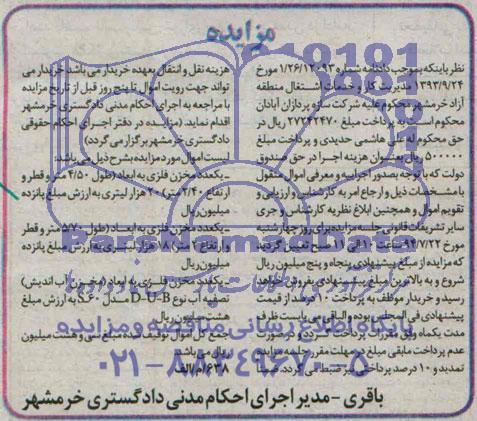 مزایده
نظر باینکه بموجب دادنامه شماره ۱/۲۶/۱۲۰۹۳ مورخ
۱۳۹۳/۹/۲۴ مدیریت کار و خدمات اشتغال منطقه
آزاد خرمشهر محکوم علیه شرکت سازه پردازان آبادان
محکوم است به پرداخت مبلغ ۲۷۲۶۳۴۷۰ ریال در
حق محکوم له علی هاشمی حدیدی و پرداخت مبلغ
۵۰۰۰۰۰ ریال بعنوان هزینه اجرا در حق صندوق
دولت که با توجه بصدور اجراییه و معرفی اموال منقول
با مشخصات ذیل و ارجاع امر به کارشناسی و ارزیابی و
تقویم اموال و همچنین ابلاغ نظریه کارشناسی و جری
سایر تشریفات قانونی جلسه مزایده برای روز چهارشنبه
مورخ ۹۴/۷/۲۲ ساعت ۱۰ الی ۱۱ صبح تعیین گردید
که مزایده از مبلغ پیشنهادی پنجاه و پنج میلیون ریال
شروع و به بالاترین مبلغ پیشنهادی بفروش خواهد
رسید و خریدار موظف به پرداخت ۱۰ درصد از قیمت
پیشنهادی فی المجلس بوده و الباقی می بایست ظرف
مدت یکماه وفق مقررات پرداخت گردد و در صورت
عدم پرداخت مابقی مبلغ در مهلت مقرر جلسه مزایده
تمدید و ۱۰ درصد پرداختی نیز ضبط می گردد. ضمنا
هزینه نقل و انتقال بعهده خریدار می باشد خریدار می
تواند جهت رویت اموال تا پنج روز قبل از تاریخ مزایده
با مراجعه به اجرای احکام مدنی دادگستری خرمشهر
اقدام نماید. (مزایده در دفتر اجرای احکام حقوقی
دادگستری خرمشهر برگزار می گردد)
لیست اموال مورد مزایده بشرح ذیل می باشد:
-یکعدد مخزن فلزی به ابعاد (طول ۴/۵۰ متر و قطر و
ارتفاع ۲/۴۰ متر) ۲۰ هزار لیتری به ارزش مبلغ پانزده
میلیون ریال
-یکعدد مخزن فلزی به ابعاد (طول ۵/۷۰ متر و قطر
و ارتفاع ۲ متر) ۱۸ هزار لیتری به ارزش مبلغ پانزده
میلیون ریال
-یکعدد مخزن فلزی به ابعاد (مخزن آب اندیش)
تصفیه آب نوع D-U-B مدل S-۶۰ به ارزش مبلغ
هشت میلیون ریال
جمع کل اموال توقیف شده مبلغ سی و هشت میلیون
ریال می باشد
۶۳۸/م/الف
باقری - مدیر اجرای احکام مدنی دادگستری خرمشهر
پایگاه اطلاع رسانی مناقصه و مزایده
۰۲۱-۸۸۳۴۹۶۷۰-۵